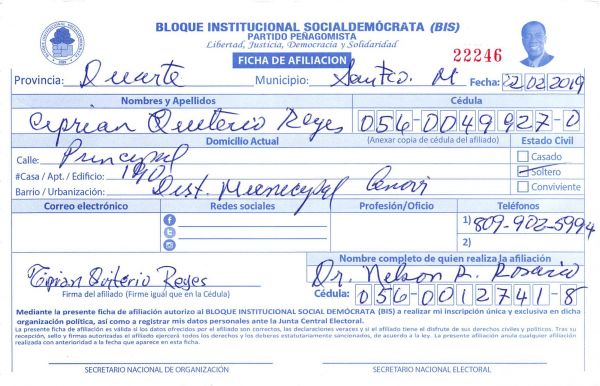 BLOQUE INSTITUCIONAL SOCIALDEMÓCRATA (BIS)
PARTIDO PEÑAGOMISTA
Libertad, Justicia, Democracia y Solidaridad
FICHA DE AFILIACION
22246
Provincia: Duarte Municipio: Santco. M Fecha: 22.02.2019
Nombres y Apellidos Cédula
Ciprian Quiterio Reyes 056-0049927-0
Domicilio Actual (Anexar copia de cédula del afiliado) Estado Civil
Calle: Principal Casado
#Casa / Apt. / Edificio: 190 Soltero
Barrio / Urbanización: Dist. Municipal Cenovi Conviviente
Correo electrónico Redes sociales Profesión/Oficio Teléfonos
1) 809-902-5994
2)
Nombre completo de quien realiza la afiliación
Ciprian Quiterio Reyes Dr. Nelson R. Rosario
Firma del afiliado (Firme igual que en la Cédula) Cédula: 056-0012741-8
Mediante la presente ficha de afiliación autorizo al BLOQUE INSTITUCIONAL SOCIAL DEMÓCRATA (BIS) a realizar mi inscripción única y exclusiva en dicha
organización política, así como a registrar mis datos personales ante la Junta Central Electoral.
La presente ficha de afiliación es válida si los datos ofrecidos por el afiliado son correctos, las declaraciones veraces y si el afiliado tiene el disfrute de sus derechos civiles y políticos. Tras su
recepción, sello y firmas autorizadas el afiliado ejercerá todos los derechos y los deberes estatutariamente sancionados, de acuerdo a la ley. La presente afiliación anula cualquier afiliación
realizada con anterioridad a la fecha que aparece en esta ficha.
SECRETARIO NACIONAL DE ORGANIZACIÓN SECRETARIO NACIONAL ELECTORAL